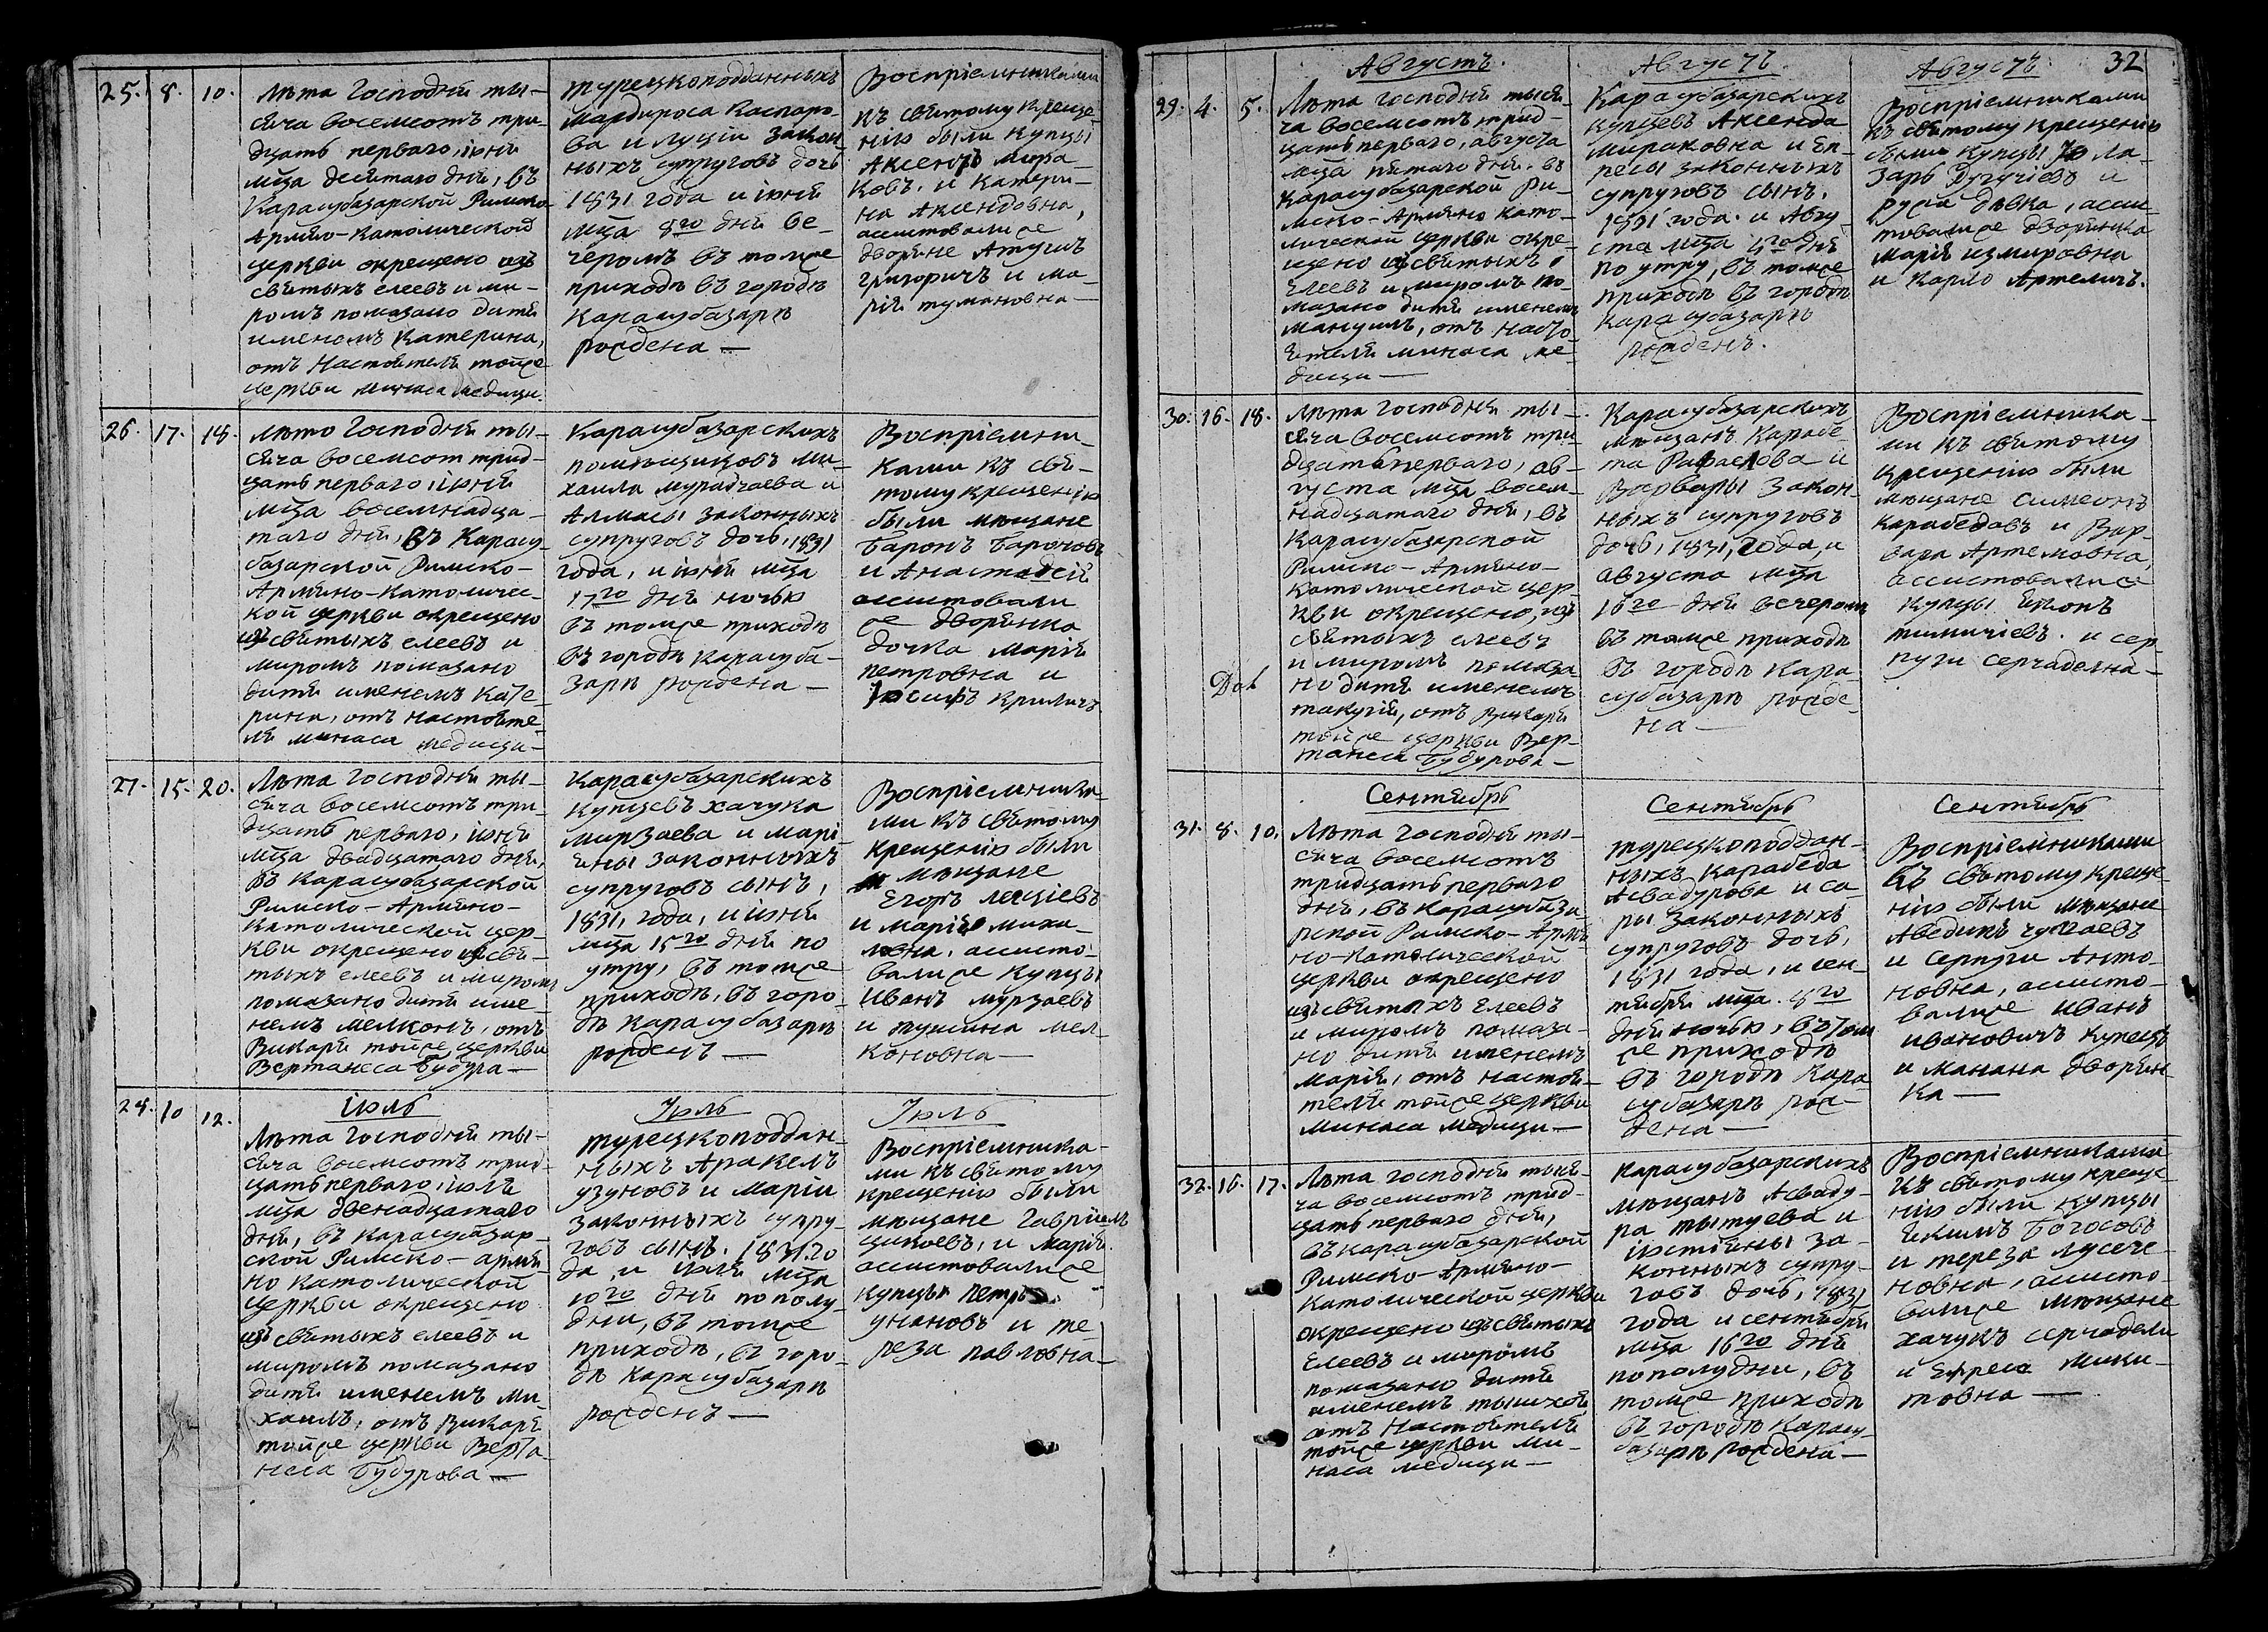 25. 8. 10.
Лѣта Господня ты-
сяча восемсотъ три-
дцать перваго, іюня
мца десятаго дня, въ
Карасубазарской Римско
Армяно-Католической
церкви окрещено изъ
святыхъ елеевъ и ми-
ромъ помазано дитя
именемъ Катерина,
отъ Настоятеля тойже
церкви Минаса Медици.
турецкоподданныхъ
Мардироса Каспаро-
ва и Луціи закон
ныхъ супруговъ дочь
1831 года и іюня
мца 8го дня ве-
черомъ въ томже
приходѣ въ городѣ
Карасубазарѣ
рождена —
Воспріемниками
къ святому креще-
нію были купцы
Аксентъ Мира-
ковъ, и Катери-
на Аксендовна,
ассистовалисе
дворяне Атулъ
Григоричъ и Ма-
рія Тумановна —
26. 17. 18.
Лѣто Господня ты-
сяча восемсот трид-
цать перваго іюня
мца восемнадца-
таго дня, въ Карасу-
базарской Римско-
Армяно-Католичес-
кой церкви окрещено
изъ святыхъ елеевъ и
миромъ помазано
дитя именемъ Кате-
рина, отъ настояте-
ля Минаса Медици —
Карасубазарскихъ
помѣщиковъ Ми-
хаила Мурадчаева и
Алмасы законныхъ
супруговъ дочь, 1831
года, и іюня мца
17го дня ночью
въ томже приходѣ
въ городѣ Карасуба-
зарѣ рождена —
Воспріемни-
ками къ свя-
тому крещенію
были мѣщане
Баронъ Бароновъ
и Анастасія
ассистовали
се дворянка
дочка Марія
Петровна и
Іосифъ Криличъ
27. 15. 20.
Лѣта Господня ты-
сяча восемсотъ три-
дцать перваго, іюня
мца двадцатаго дня,
въ Карасубазарской
Римско-Армяно-
Католической цер-
кви окрещено изъ свя-
тыхъ елеевъ и миромъ
помазано дитя име-
немъ Мелконъ, отъ
Викарія тойже церкви
Вертанеса Будура —
Карасубазарскихъ
купцевъ Хачука
Мирзаева и Марі
яны законныхъ
супруговъ сынъ,
1831, года, и іюня
мца 15го дня по
утру, въ томже
приходѣ, въ горо-
дѣ Карасубазарѣ
рожденъ —
Воспріемника-
ми къ святому
крещенію были
мѣщане
Егоръ
и Марія Миха-
ловна, ассисто-
валисе купцы
Иванъ Мурзаевъ
и Тушина Мел-
коновна —
28. 10 12.
Іюль
Лѣта Господня ты-
сяча восемсотъ трид-
цать перваго, іюля
мца двенадцатаго
дня, въ Карасубазар-
ской Римско-Армя-
но Католической
церкви окрещено
изъ святыхъ елеевъ и
миромъ помазано
дитя именемъ Ми-
хаилъ, отъ Викарія
тойже церкви Верта-
неса Будурова —
Іюль
турецкоподдан-
ныхъ Аракелъ
Узуновъ и Маріи
законныхъ супру-
говъ сынъ. 1831. го
да, и іюля мца
10го дня пополу-
дни, въ томже
приходѣ, въ горо-
дѣ Карасубазарѣ
рожденъ —
Іюль
Воспріемника-
ми къ святому
крещенію были
мѣщане Гавріилъ
и Марія
ассистовалисе
купцы Петръ
Унановъ и Те-
реза Павловна —
32
29. 4. 5.
Августъ.
Лѣта Господня тыся-
ча восемсотъ трид-
цать перваго, августа
мца пятаго дня, въ
Карасубазарской Ри-
мско-Армяно Като-
лической церкви окре-
щено изъ святыхъ
елеевъ и миромъ по-
мазано дитя именемъ
Мануилъ, отъ насто-
ятеля Минаса Ме-
дици —
Августъ.
Карасубазарскихъ
купцевъ Аксенда
Мираковна и Еп-
ресы законныхъ
супруговъ сынъ.
1831 года. и Авгу-
ста мца 4го дня
по утру, въ томже
приходѣ въ городѣ
Карасубазарѣ
рожденъ.
Августъ
Воспріемниками
къ святому крещенію
были купцы Ла-
зарь Дугучіевъ и
Руса дѣвка, асси-
товалисе дворянка
Марія Измировна
и Карло Артемичъ.
30. 16. 18.
Лѣта Господня ты-
сяча восемсотъ три
дцать перваго, ав-
густа мца восем-
надцатаго дня, въ
Карасубазарской
Римско-Армяно-
Католической цер-
кви окрещено, изъ
святыхъ елеевъ
и миромъ помаза-
но дитя именемъ
Такугія, отъ Викарія
тойже церкви Вер-
танеса Будурова —
Карасубазарскихъ
мѣщанъ Карабе-
та Рафаелова и
Варвары закон-
ныхъ супруговъ
дочь, 1831, года, и
августа мца
16го дня вечеромъ
въ томже приходѣ
въ городѣ Кара-
субазарѣ рожде-
на —
Воспріемника-
ми къ святому
крещенію были
мѣщане Симеонъ
Карабедовъ и Вар-
вара Артемовна,
ассистовалисе
купцы Якопъ
и Сер-
пуги Серчаделна —
31. 8. 10.
Сентябрь
Лѣта Господня ты-
сяча восемсотъ
тридцать перваго
дня, въ Карасубаза-
рской Римско-Армя-
но-Католической
церкви окрещено
изъ святыхъ елеевъ
и миромъ помаза-
но дитя именемъ
Марія, отъ настоя-
теля тойже церкви
Минаса Медици —
Сентябрь
турецкоподдан-
ныхъ Карабеда
Асвадурова и Са-
ры законныхъ
супруговъ дочь,
1831 года, и сен-
тября мца 8го
дня ночью, въ том
же приходѣ
въ городѣ Кара
субазарѣ рож-
дена —
Сентябрь
Воспріемниками
къ святому креще-
нію были мѣщане
Аведикъ Чугаевъ
и Серпуги Анто-
новна, ассисто-
валисе Иванъ
Ивановичъ купецъ
и Манана дворян-
ка —
32. 16. 17.
Лѣта Господня тыся-
ча восемсотъ трид-
цать перваго дня,
въ Карасубазарской
Римско-Армяно-
Католической церкви
окрещено изъ святыхъ
елеевъ и миромъ
помазано дитя
именемъ
отъ Настоятеля
тойже церкви Ми-
наса Медици —
Карасубазарскихъ
мѣщанъ Асваду-
ра Тытуева и
Юстіяны за-
конныхъ супру-
говъ дочь, 1831
года и сентября
мца 16го дня
пополудни, въ
томже приходѣ
въ городѣ Карасу-
базарѣ рождена —
Воспріемниками
къ святому креще
нію были купцы
Якимъ Богосовъ
и Тереза Лусече-
новна, ассисто-
валисе мѣщане
Хачукъ Серчадели
и Ефреса Мики-
товна —